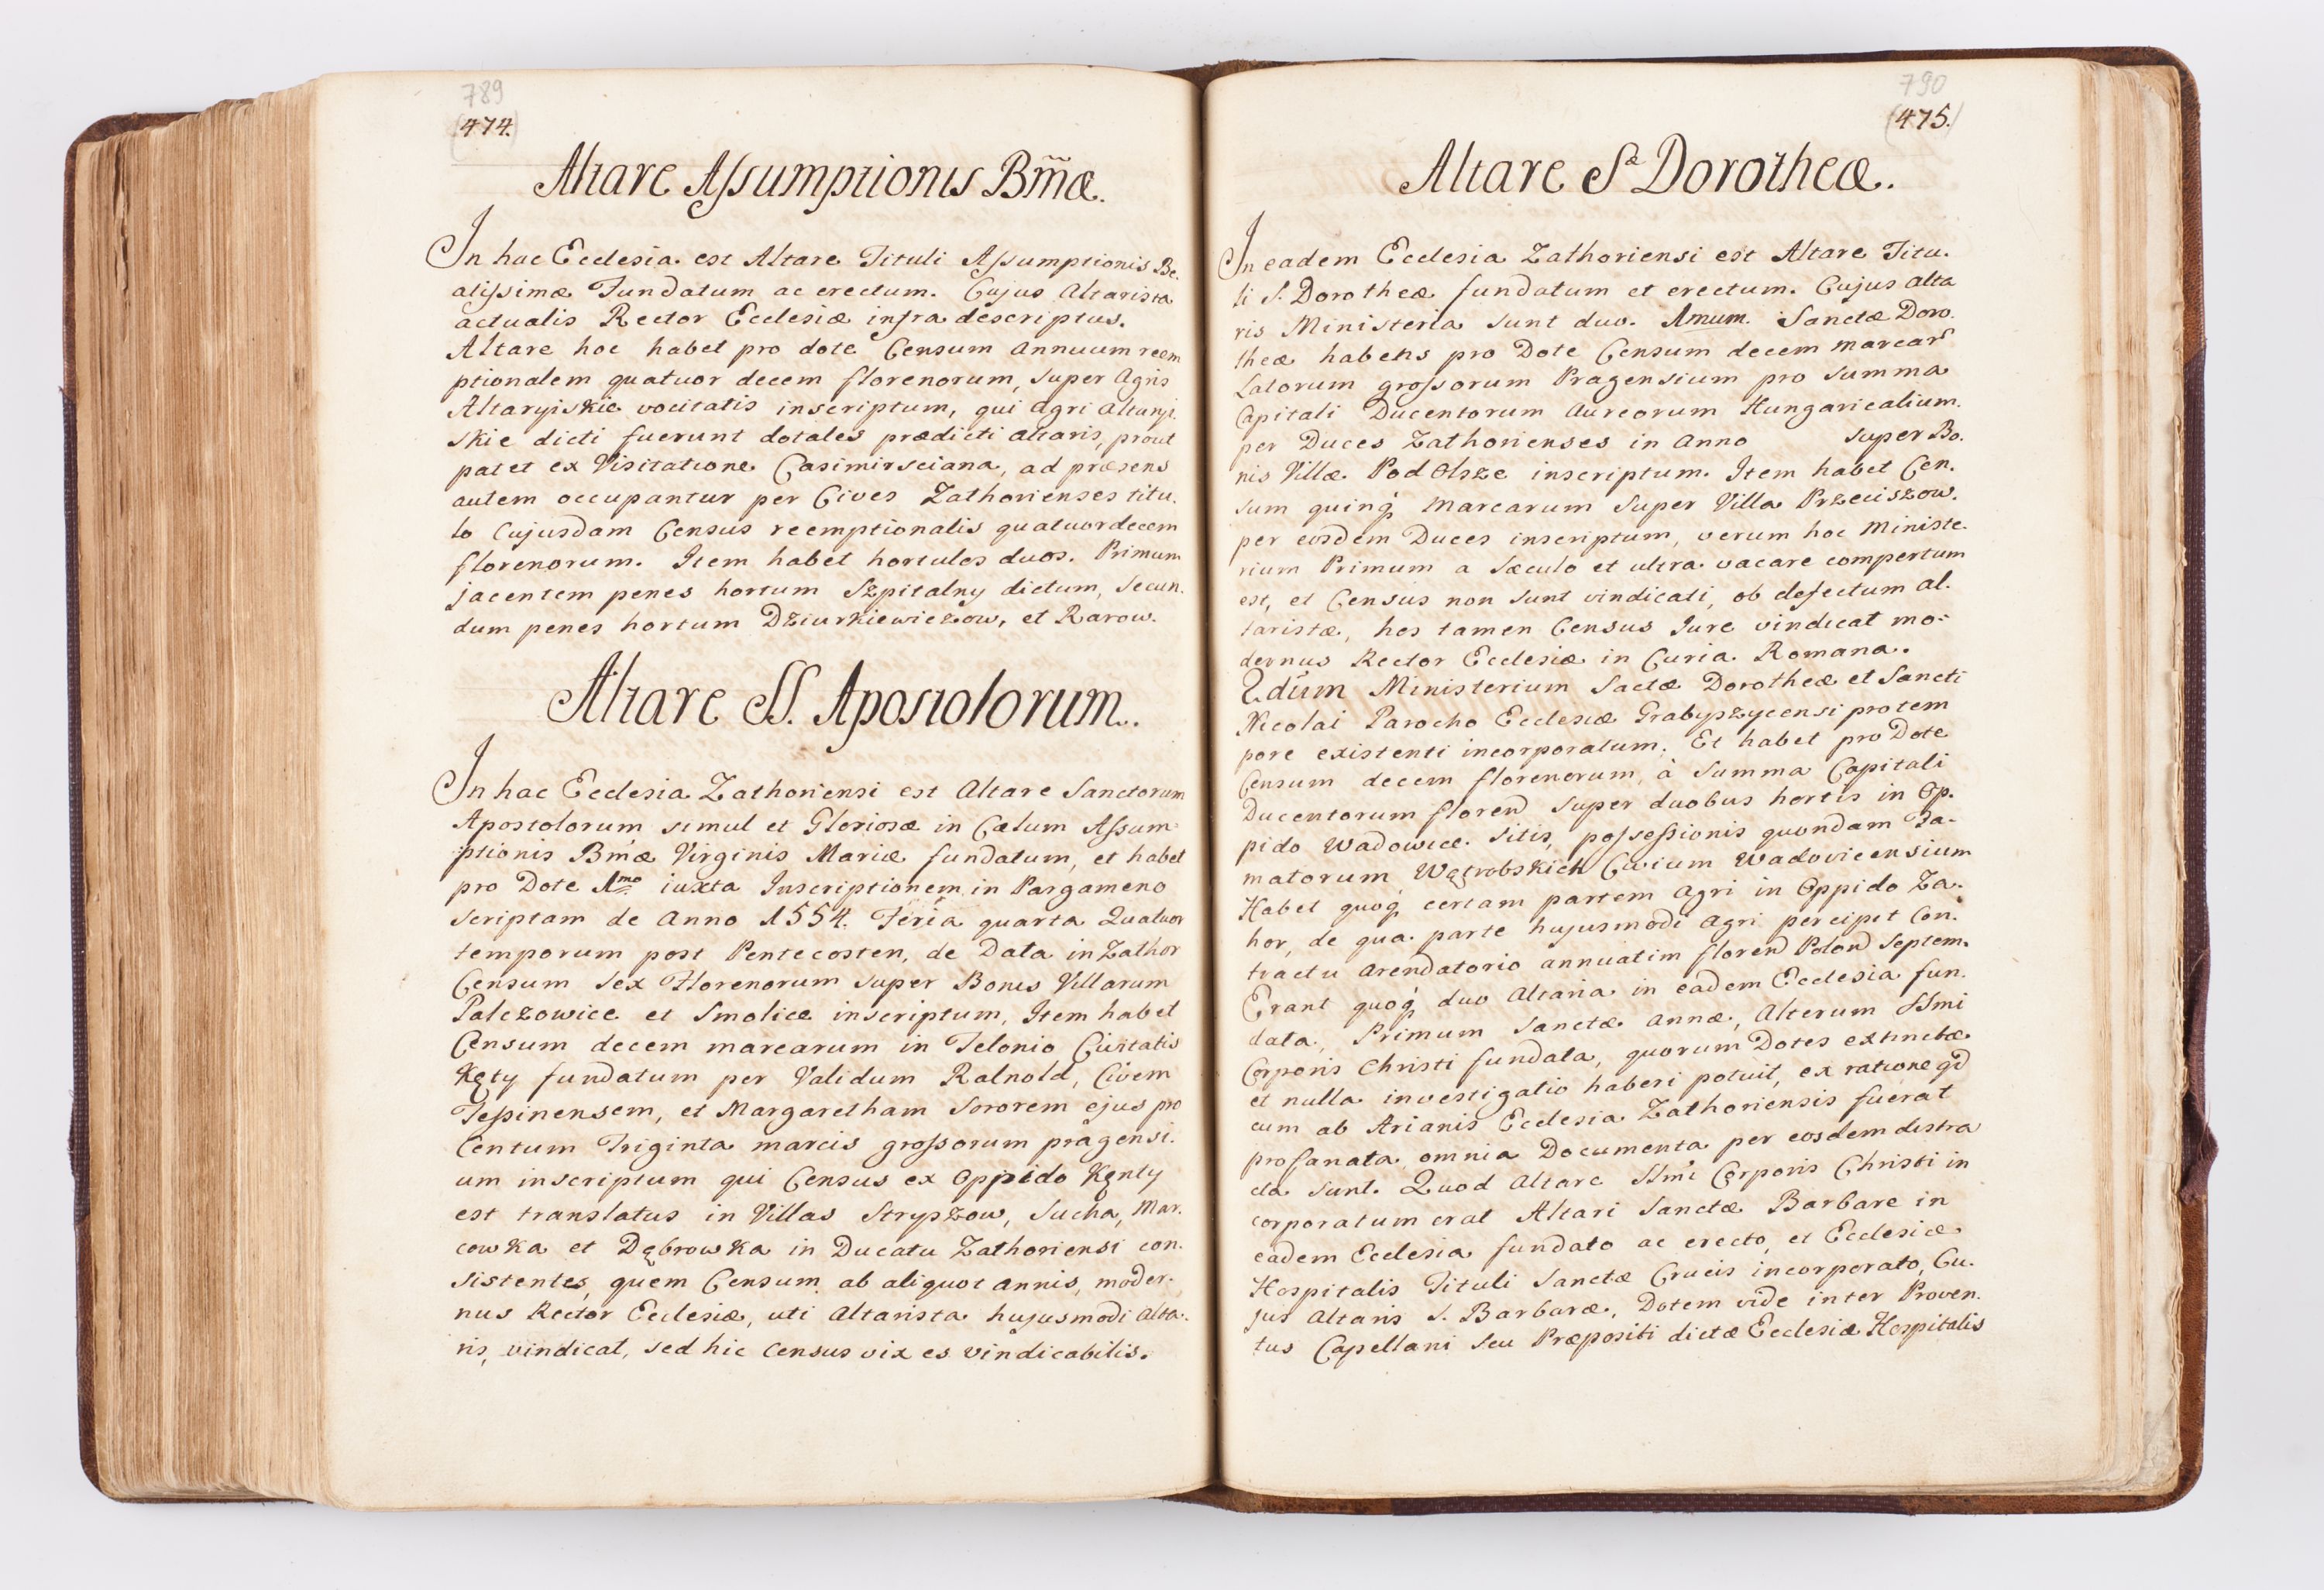 789
(474.)
Altare Assumptionis Bm̃æ.
In hac Ecclesia est Altare Tituli Assumptionis Be-
atissimæ Fundatum ac erectum. Cujus Altarista
actualis Rector Ecclesiæ infra descriptus.
Altare hoc habet pro dote Censum Annuum reem
ptionalem quatuor decem florenorum, super Agris
Altaryiskie vocitatis inscriptum, qui agri altaryi-
skie dicti fuerunt dotales prædicti altaris, prout
patet ex Visitatione Casimirsciana, ad præsens
autem occupantur per Cives Zathorienses titu-
lo Cujusdam Census reemptionalis quatuordecem
florenorum. Item habet hortulos duos. Primum
jacentem penes hortum Szpitalny dictum, Secun-
dum penes hortum Dziurkiewiczow, et Rarow.
Altare SS. Apostolorum.
In hac Ecclesia Zathoriensi est Altare Sanctorum
Apostolorum simul et Gloriosæ in Cœlum Assum-
ptionis Bmæ Virginis Mariæ fundatum, et habet
pro Dote 1mo iuxta Inscriptionem in Pargameno
scriptam de Anno 1554. Feria quarta Quatuor
temporum post Pentecosten, de Data in Zathor
Censum Sex Florenorum super Bonis Villarum
Palczowice et Smolice inscriptum, Item habet
Censum decem marcarum in Telonio Civitatis
Kęty fundatum per Validum Ralnold, Civem
Tessinensem, et Margaretham Sororem ejus pro
Centum Triginta marcis grossorum pragensi-
um inscriptum qui Census ex Oppido Kęnty
est translatus in Villas Stryszow, Sucha, Mar-
cowka et Dąbrowka in Ducatu Zathoriensi con-
sistentes, quem Censum ab aliquot annis, moder-
nus Rector Ecclesiæ, uti Altarista hujusmodi alta-
ris, vindicat, sed hic Census vix es vindicabilis.
790
(475.)
Altare Sæ Dorotheæ.
In eadem Ecclesia Zathoriensi est Altare Titu-
li S. Dorotheæ fundatum et erectum. Cujus alta
ris Ministeria sunt duo. 1mum. Sanctæ Doro-
theæ habens pro Dote Censum decem marcar
Latorum grossorum Pragensium pro summa
Capitali Ducentorum Aureorum Hungaricalium
per Duces Zathorienses in Anno super Bo-
nis Villæ PodOlsze inscriptum. Item habet Cen-
sum quinq marcarum Super Villa Przeciszow.
per eosdem Duces inscriptum, verum hoc Ministe-
rium Primum a Sæculo et ultra vacare compertum
est, et Census non sunt vindicati, ob defectum al-
taristæ, hos tamen Census Jure vindicat mo-
dernus Rector Ecclesiæ in Curia Romana.
2dum Ministerium Sactæ Dorotheæ et Sancti
Nicolai Parocho Ecclesiæ Grabyszycensi pro tem
pore existenti incorporatum. Et habet pro Dote
Censum decem florenorum, à Summa Capitali
Ducentorum floren super duobus hortis in Op-
pido Wadowice sitis, possessionis quondam Fa-
matorum Wątrobskich Civium Wadovicensium
Habet quoq certam partem agri in Oppido Za-
thor, de qua parte hujusmodi agri percipit Con-
tractu arendatorio annuatim floren Polon Septem.
Erant quoq duo Altaria in eadem Ecclesia fun-
data, Primum Sanctæ Annæ, Alterum SSmi
Corporis Christi fundata, quorum Dotes extinctæ
et nulla investigatio haberi potuit, ex ratione qd
cum ab Arianis Ecclesia Zathoriensis fuerat
profanata, omnia Documenta per eosdem distra
cta sunt. Quod Altare SSmi Corporis Christi in
corporatum erat Altari Sanctæ Barbare in
eadem Ecclesia fundato ac erecto, et Ecclesiæ
Hospitalis Tituli Sanctæ Crucis incorporato, Cu-
jus altaris S. Barbaræ, Dotem vide inter Proven-
tus Capellani seu Præpositi dictæ Ecclesiæ Hospitalis